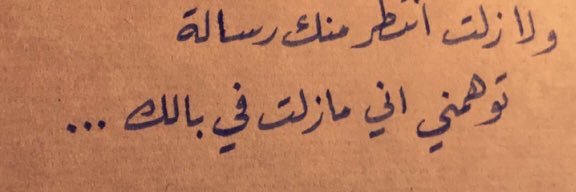 ولا زلت انتظر منك رسالة
توهمني اني مازلت في بالك ...